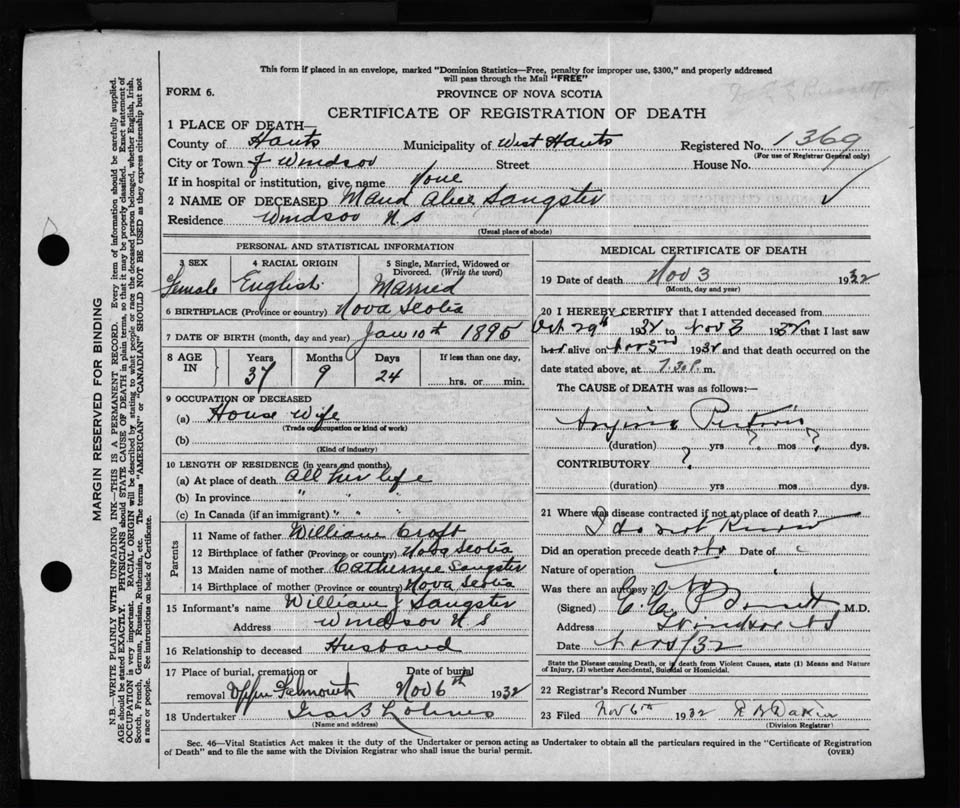 This form if placed in an envelope, marked "Dominion Statistics—Free, penalty for improper use, $300," and properly addressed
will pass through the Mail "FREE"
FORM 6.
PROVINCE OF NOVA SCOTIA
CERTIFICATE OF REGISTRATION OF DEATH
1 PLACE OF DEATH—
County of Hants Municipality of West Hants Registered No. 1369
(For use of Registrar General only)
City or Town of Windsor Street House No.
If in hospital or institution, give name None
2 NAME OF DECEASED Maud Alice Sangster
Residence Windsor N.S
(Usual place of abode)
PERSONAL AND STATISTICAL INFORMATION
3 SEX 4 RACIAL ORIGIN 5 Single, Married, Widowed or
Divorced. (Write the word)
Female English Married
6 BIRTHPLACE (Province or country) Nova Scotia
7 DATE OF BIRTH (month, day and year) Jan 10th 1895
8 AGE IN Years Months Days If less than one day,
37 9 24 hrs. or min.
9 OCCUPATION OF DECEASED
(a) House wife
(Trade occupation or kind of work)
(b)
(Kind of industry)
10 LENGTH OF RESIDENCE (in years and months)
(a) At place of death All her life
(b) In province " " "
(c) In Canada (if an immigrant) " " "
Parents
11 Name of father William Croft
12 Birthplace of father (Province or country) Nova Scotia
13 Maiden name of mother Catherine Sangster
14 Birthplace of mother (Province or country) Nova Scotia
15 Informant's name William J Sangster
Address Windsor N S
16 Relationship to deceased Husband
17 Place of burial, cremation or Date of burial
removal Upper Falmouth Nov 6th 1932
18 Undertaker
(Name and address)
MEDICAL CERTIFICATE OF DEATH
19 Date of death Nov 3 1932
(Month, day and year)
20 I HEREBY CERTIFY that I attended deceased from
Oct 29th 1932 to Nov 3 1932 that I last saw
her alive on Nov 3rd 1932 and that death occurred on the
date stated above, at 7.30 P. m.
The CAUSE of DEATH was as follows:—
Angina Pectoris
(duration) yrs ? mos ? dys.
CONTRIBUTORY ?
(duration) yrs mos dys.
21 Where was disease contracted if not at place of death?
I do not know
Did an operation precede death? No Date of
Nature of operation
Was there an autopsy? No
(Signed) M.D.
Address Windsor NS
Date Nov 5/32
State the Disease causing Death, or in death from Violent Causes, state (1) Means and Nature
of Injury, (2) whether Accidental, Suicidal or Homicidal.
22 Registrar's Record Number
23 Filed Nov 6th 1932
(Division Registrar)
Sec. 46—Vital Statistics Act makes it the duty of the Undertaker or person acting as Undertaker to obtain all the particulars required in the "Certificate of Registration
of Death" and to file the same with the Division Registrar who shall issue the burial permit.
(OVER)
MARGIN RESERVED FOR BINDING
N.B.—WRITE PLAINLY WITH UNFADING INK—THIS IS A PERMANENT RECORD. Every item of information should be carefully supplied.
AGE should be stated EXACTLY. PHYSICIANS should STATE CAUSE OF DEATH in plain terms, so that it may be properly classified. Exact statement of
OCCUPATION is very important. RACIAL ORIGIN will be described by stating to what people or race the deceased person belonged, whether English, Irish,
Scotch, French, German, Russian, Ruthenian, etc. The terms "AMERICAN" or "CANADIAN" SHOULD NOT BE USED as they express citizenship but not
a race or people. See instructions on back of Certificate.